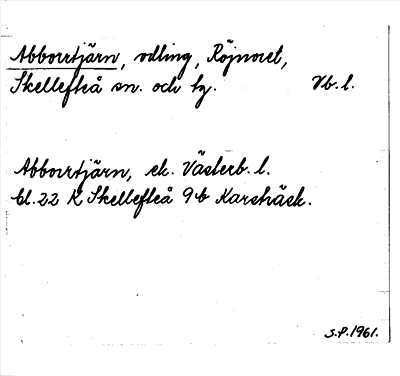 Abborrtjärn, odling, Röjnoret,
Skellefteå sn. och tg. Vb. l.
Abborrtjärn, ek. Västerb. l.
bl. 22 K Skellefteå 9 b Karsträsk.
S.P. 1961.